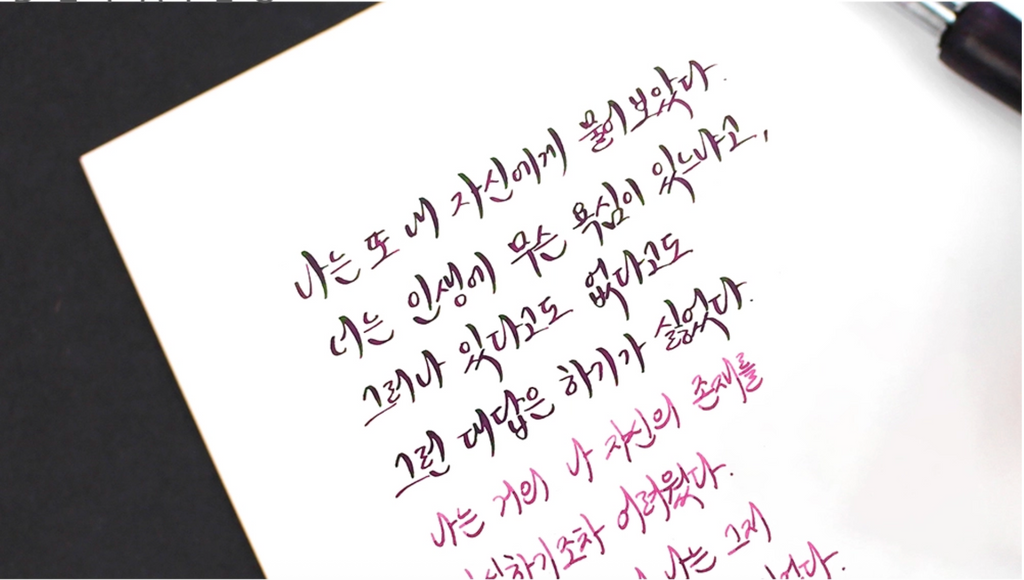 나는 또 내 자신에게 물어보았다.
너는 인생에 무슨 욕심이 있느냐고,
그러나 있다고도 없다고도
그런 대답은 하기가 싫었다.
나는 거의 나 자신의 존재를
어려웠다.
나는 그저